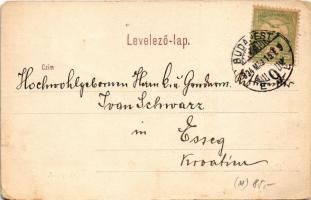 Levelező-lap.
BUDAPEST
Czim
Hochwohlgeboren Herrn
Ivan Schwarz
in
Esseg
Kroatien
(M) 85,-